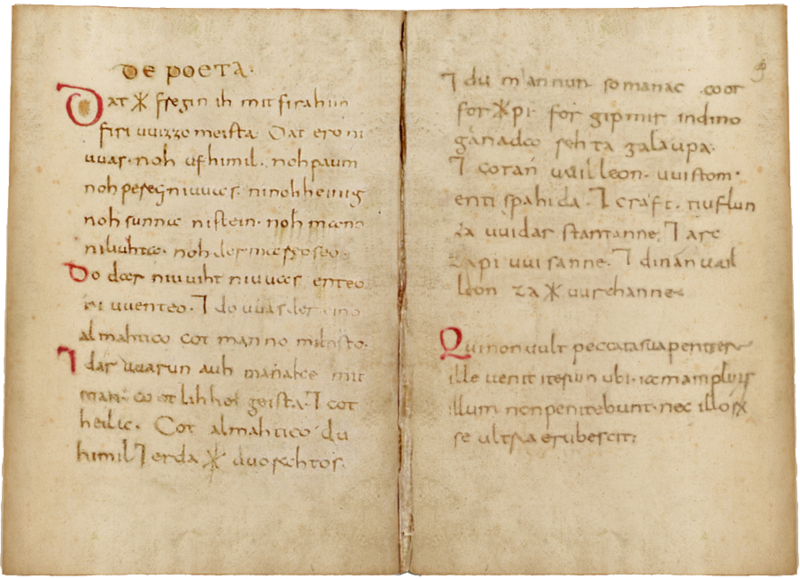 De poeta·
Dat *fregin ih mit firahim
firiuuizzo meista· Dat ero ni
uuas· noh ufhimil· noh paum
noh pereg ni uuas· ninohheinig
noh sunna nistein· noh mano
niliuhta· noh der mareoseo·
Do dar niuuiht niuuas enteo
ni uuenteo· ⁊ do uuas der eino
almahtico cot manno miltisto·
⁊ dar uuarun auh manake mit
inan· cootlihhe geista· ⁊ cot
heilac· Cot almahtico du
himil ⁊ erda * uuorahtos·
⁊ du mannun so manac coot
for*pi· for gipmir indino
ganada rehta galaupa·
⁊ cotan uuilleon· uuistom·
enti spahida· ⁊ craft· tiuflun
za uuidarstantanne· ⁊ arc
zapiuuisanne· ⁊ dinan uuil
leon za *uurchanne·
Qui non uult peccata sua penitere
ille uenit iterum ubi iam amplius
illum non penitebunt· nec illorum
se ultra erubescit·